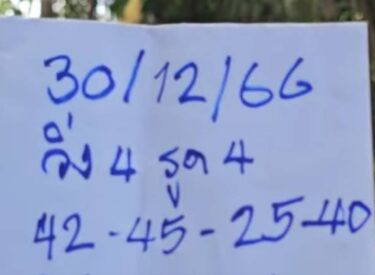 30/12/66
วิ่ง 4 รูด 4
42-45-25-40